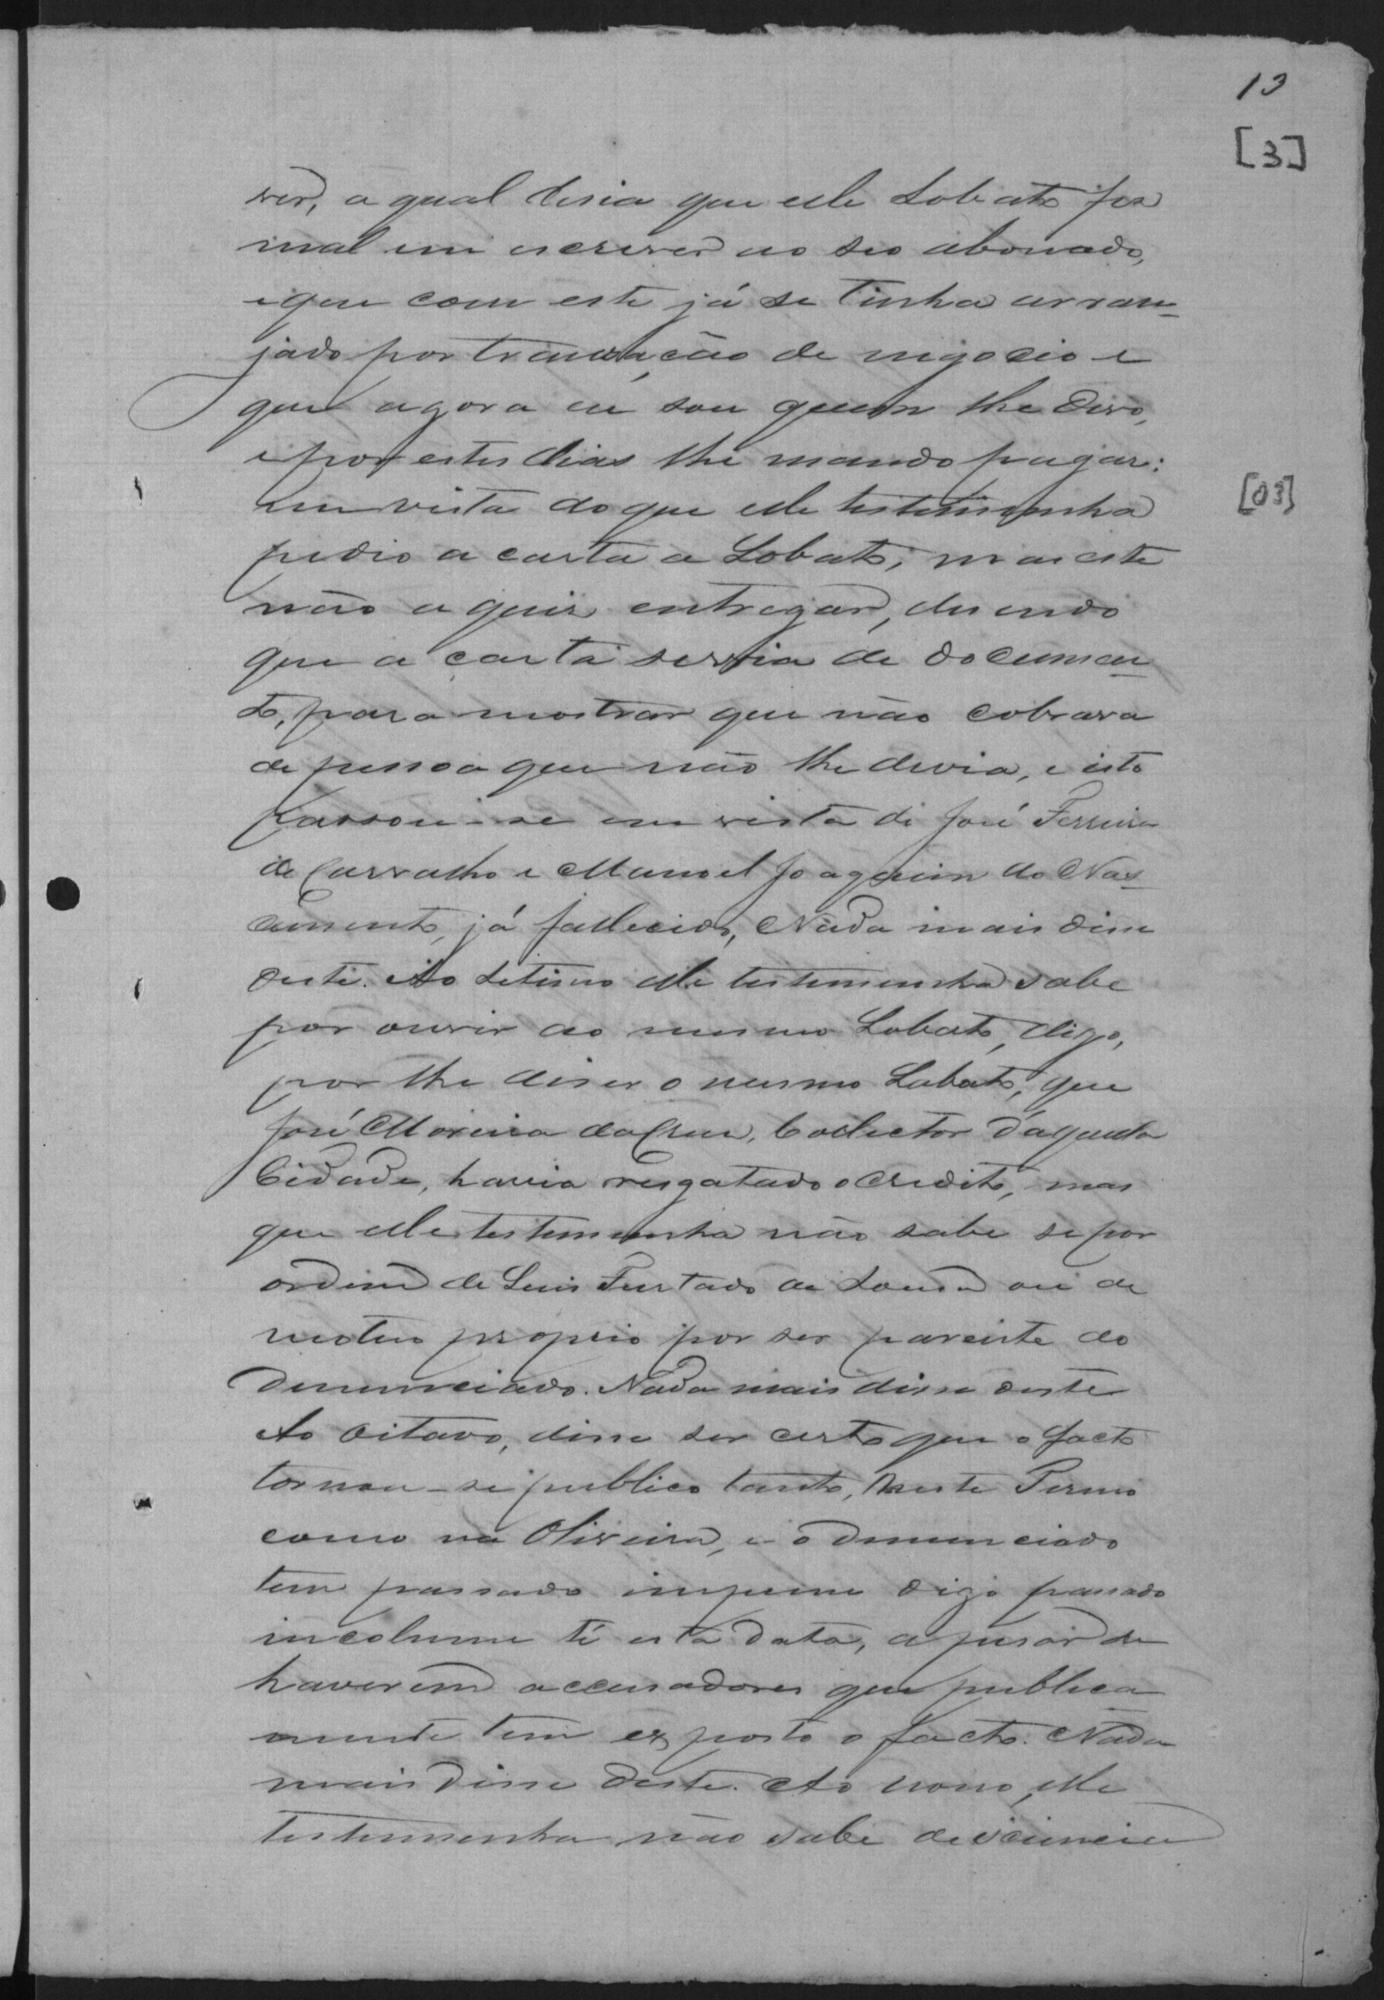 13
[3]
ver, a qual disia que elle Lobato fes
mal em escrever ao seo abonado,
e que com este já se tinha arran-
jado por transação de negocio e
que agora eu sou quem lhe devo,
e por estes dias lhe mando pagar:
em vista do que elle testemunha
[03]
pedio a carta a Lobato, mas este
não a quis entregar, disendo
que a carta servia de documen-
to, para mostrar que não cobrava
de pessoa que não lhe devia, e isto
passou-se em vista de José Ferreira
de Carvalho e Manoel Joaquim do Nas-
cimento, já fallecido, Nada mais disse
deste. Ao setimo elle testemunha sabe
por ouvir ao mesmo Lobato, digo,
por lhe diser o mesmo Lobato, que
José Moreira da Crus, Collector d'aquella
Cidade, havia resgatado o credito, mas
que elle testemunha não sabe se por
ordem de Luis Furtado de Sousa ou de
motu proprio por ser parente do
denunciado. Nada mais disse deste
Ao oitavo, disse ser certo que o facto
tornou-se publico tanto, neste Termo
como na Oliveira, e o denunciado
tem passado impune digo passado
incolume té esta data, apesar de
haverem accusadores que publica
mente tem exposto o facto. Nada
mais disse deste. Ao nono, elle
testemunha não sabe de sciencia